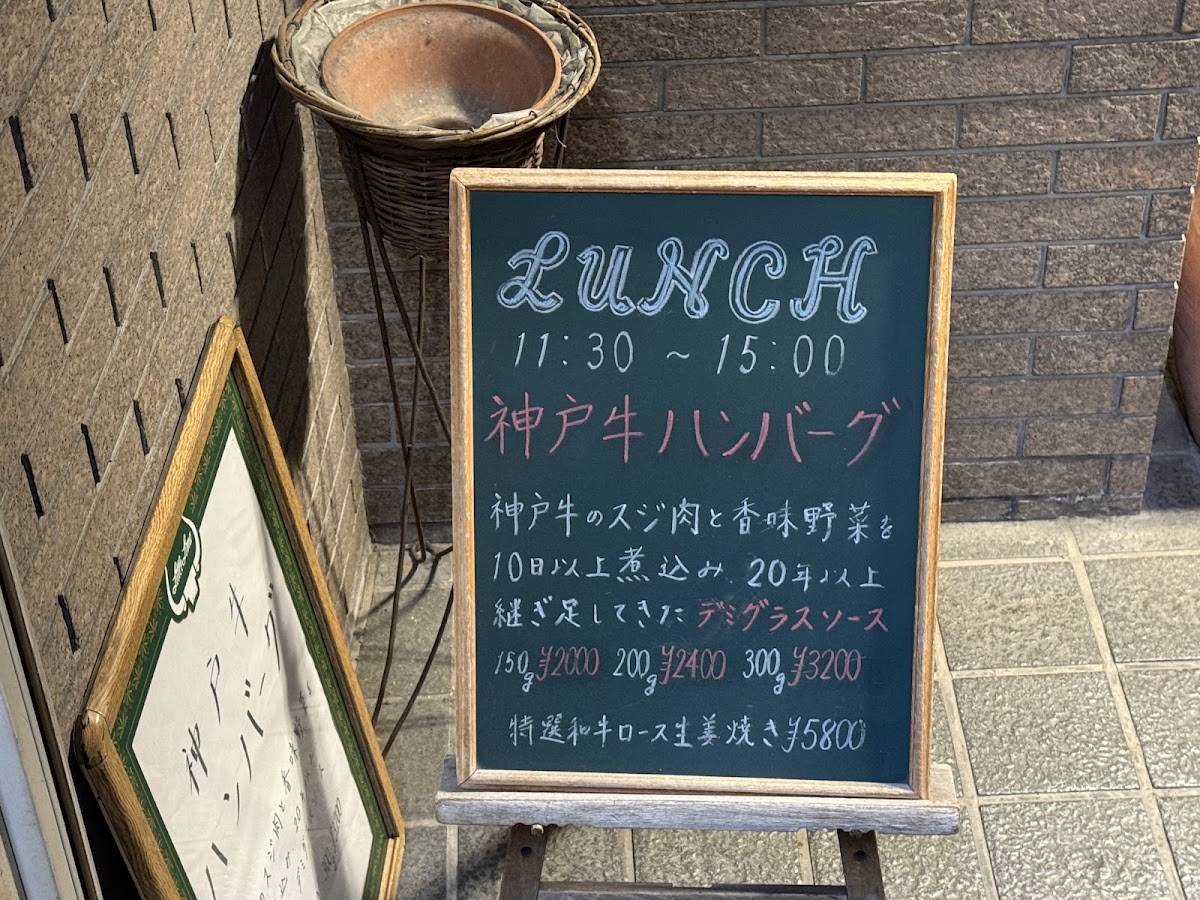 LUNCH
11:30 ~ 15:00
神戸牛ハンバーグ
神戸牛のスジ肉と香味野菜を
10日以上煮込み 20年以上
継ぎ足してきた デミグラスソース
150g ¥2000 200g ¥2400 300g ¥3200
特選和牛ロース生姜焼き ¥5800
神戸牛
ハンバーグ
スジ肉と香味